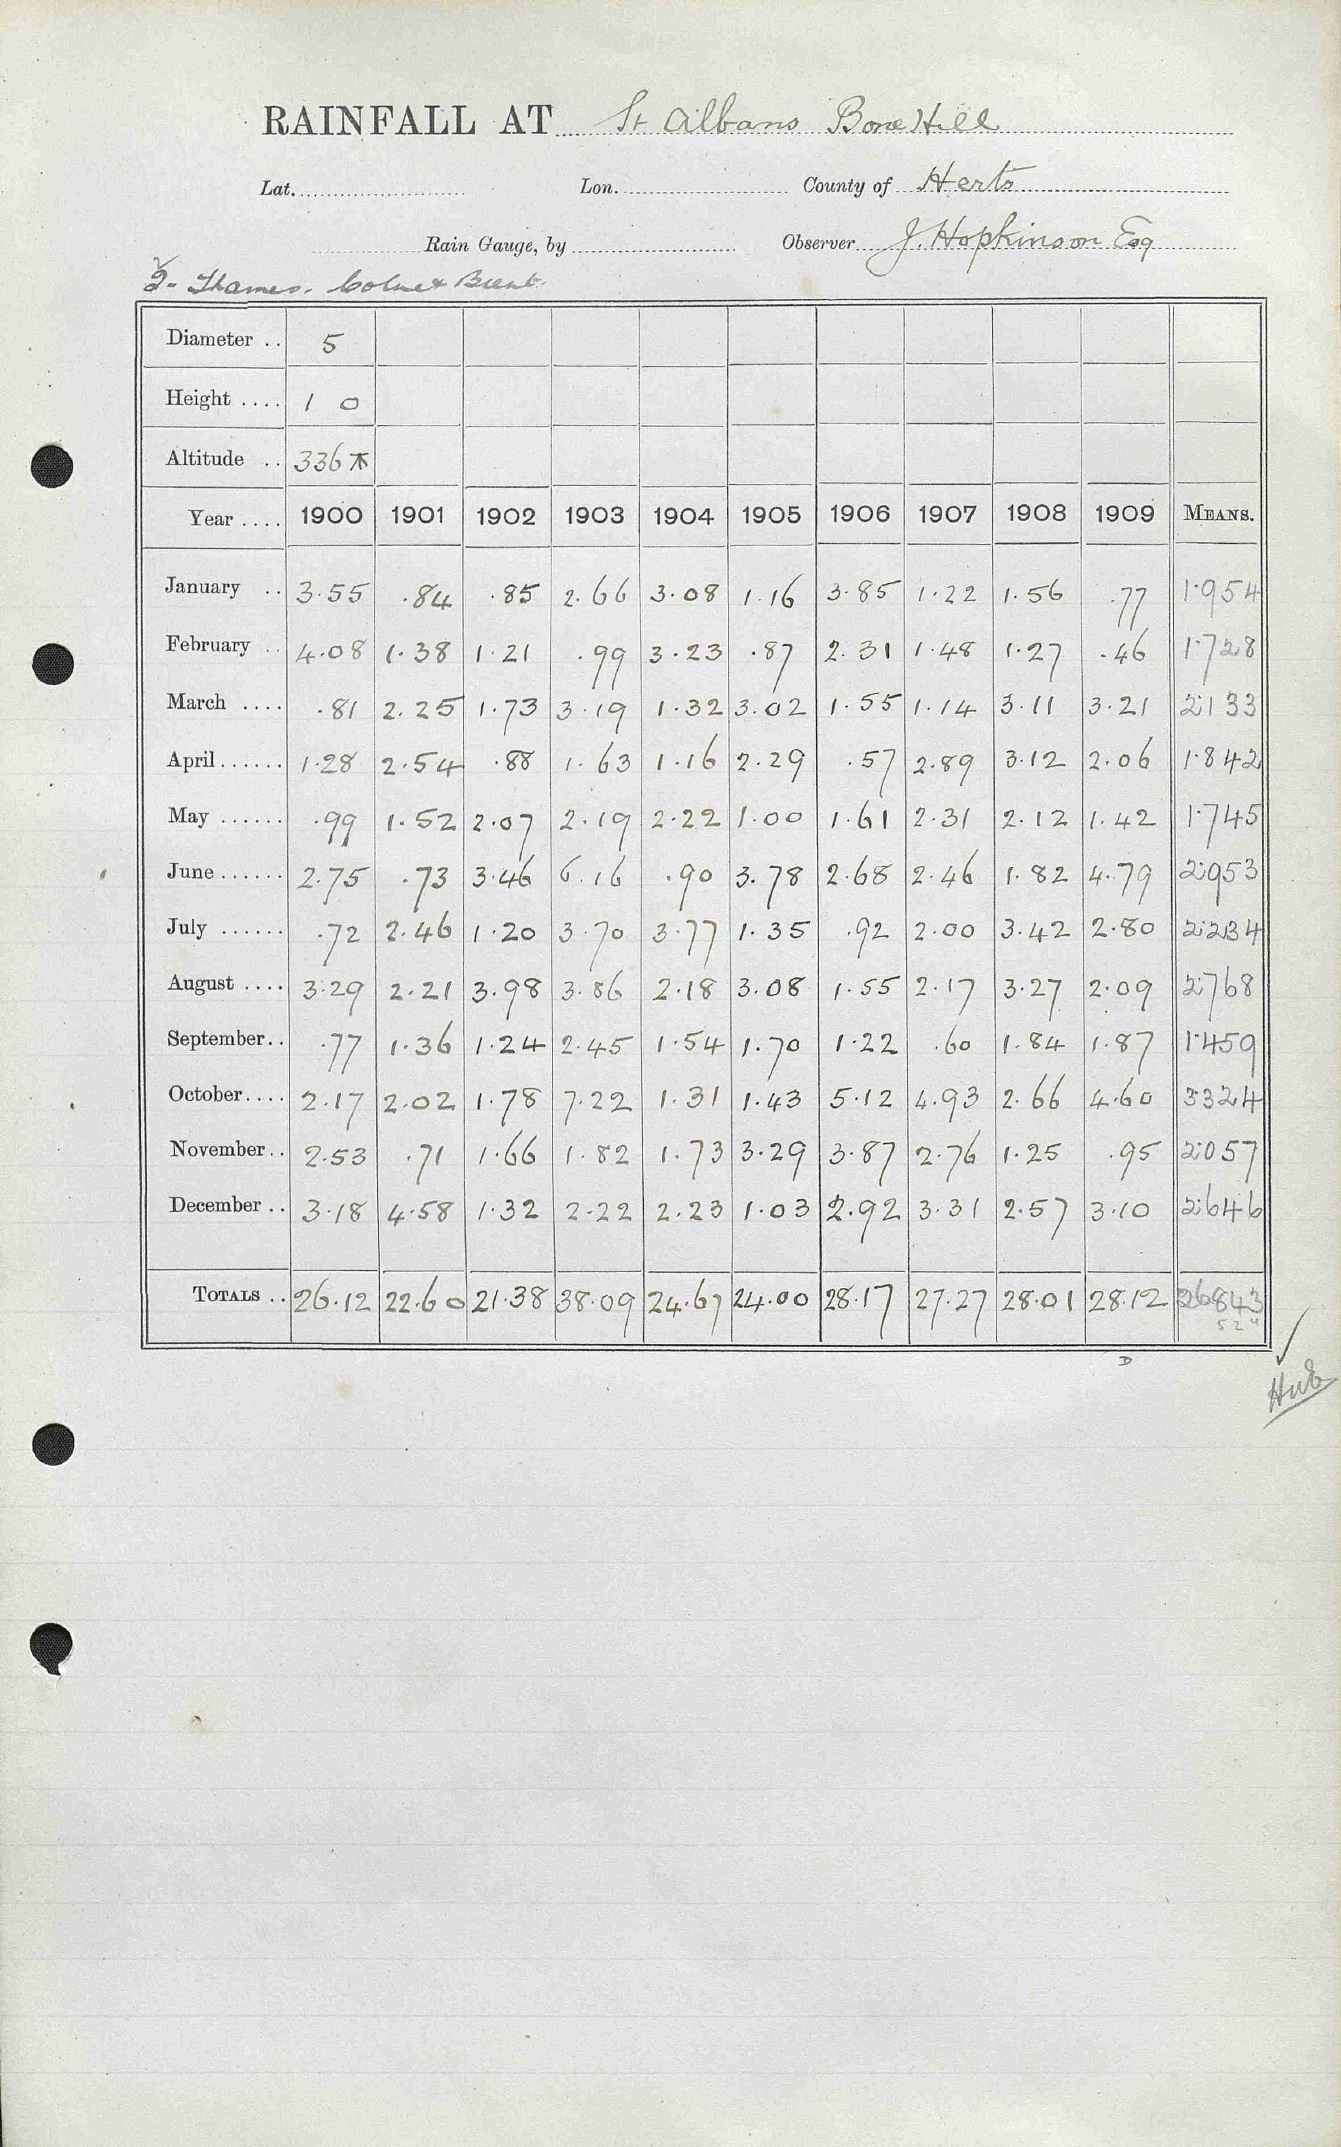 RAINFALL AT St Albans Bone Hill
Lat. Lon. County of Herts
Rain Gauge, by Observer J. Hopkinson Esq
2. Thames. Colne & Brent.
Diameter .. 5
Height .... 1 0
Altitude .. 336
Year .... 1900 1901 1902 1903 1904 1905 1906 1907 1908 1909 MEANS.
January .. 3.55 .84 .85 2.66 3.08 1.16 3.85 1.22 1.56 .77 1.954
February .. 4.08 1.38 1.21 .99 3.23 .87 2.31 1.48 1.27 .46 1.728
March .... .81 2.25 1.73 3.19 1.32 3.02 1.55 1.14 3.11 3.21 2.133
April ...... 1.28 2.54 .88 1.63 1.16 2.29 .57 2.89 3.12 2.06 1.842
May ...... .99 1.52 2.07 2.19 2.22 1.00 1.61 2.31 2.12 1.42 1.745
June ...... 2.75 .73 3.46 6.16 .90 3.78 2.68 2.46 1.82 4.79 2.953
July ...... .72 2.46 1.20 3.70 3.77 1.35 .92 2.00 3.42 2.80 2.234
August .... 3.29 2.21 3.98 3.86 2.18 3.08 1.55 2.17 3.27 2.09 2.768
September.. .77 1.36 1.24 2.45 1.54 1.70 1.22 .60 1.84 1.87 1.459
October.... 2.17 2.02 1.78 7.22 1.31 1.43 5.12 4.93 2.66 4.60 3.324
November.. 2.53 .71 1.66 1.82 1.73 3.29 3.87 2.76 1.25 .95 2.057
December .. 3.18 4.58 1.32 2.22 2.23 1.03 2.92 3.31 2.57 3.10 2.646
TOTALS .. 26.12 22.60 21.38 38.09 24.67 24.00 28.17 27.27 28.01 28.12 26.843
D